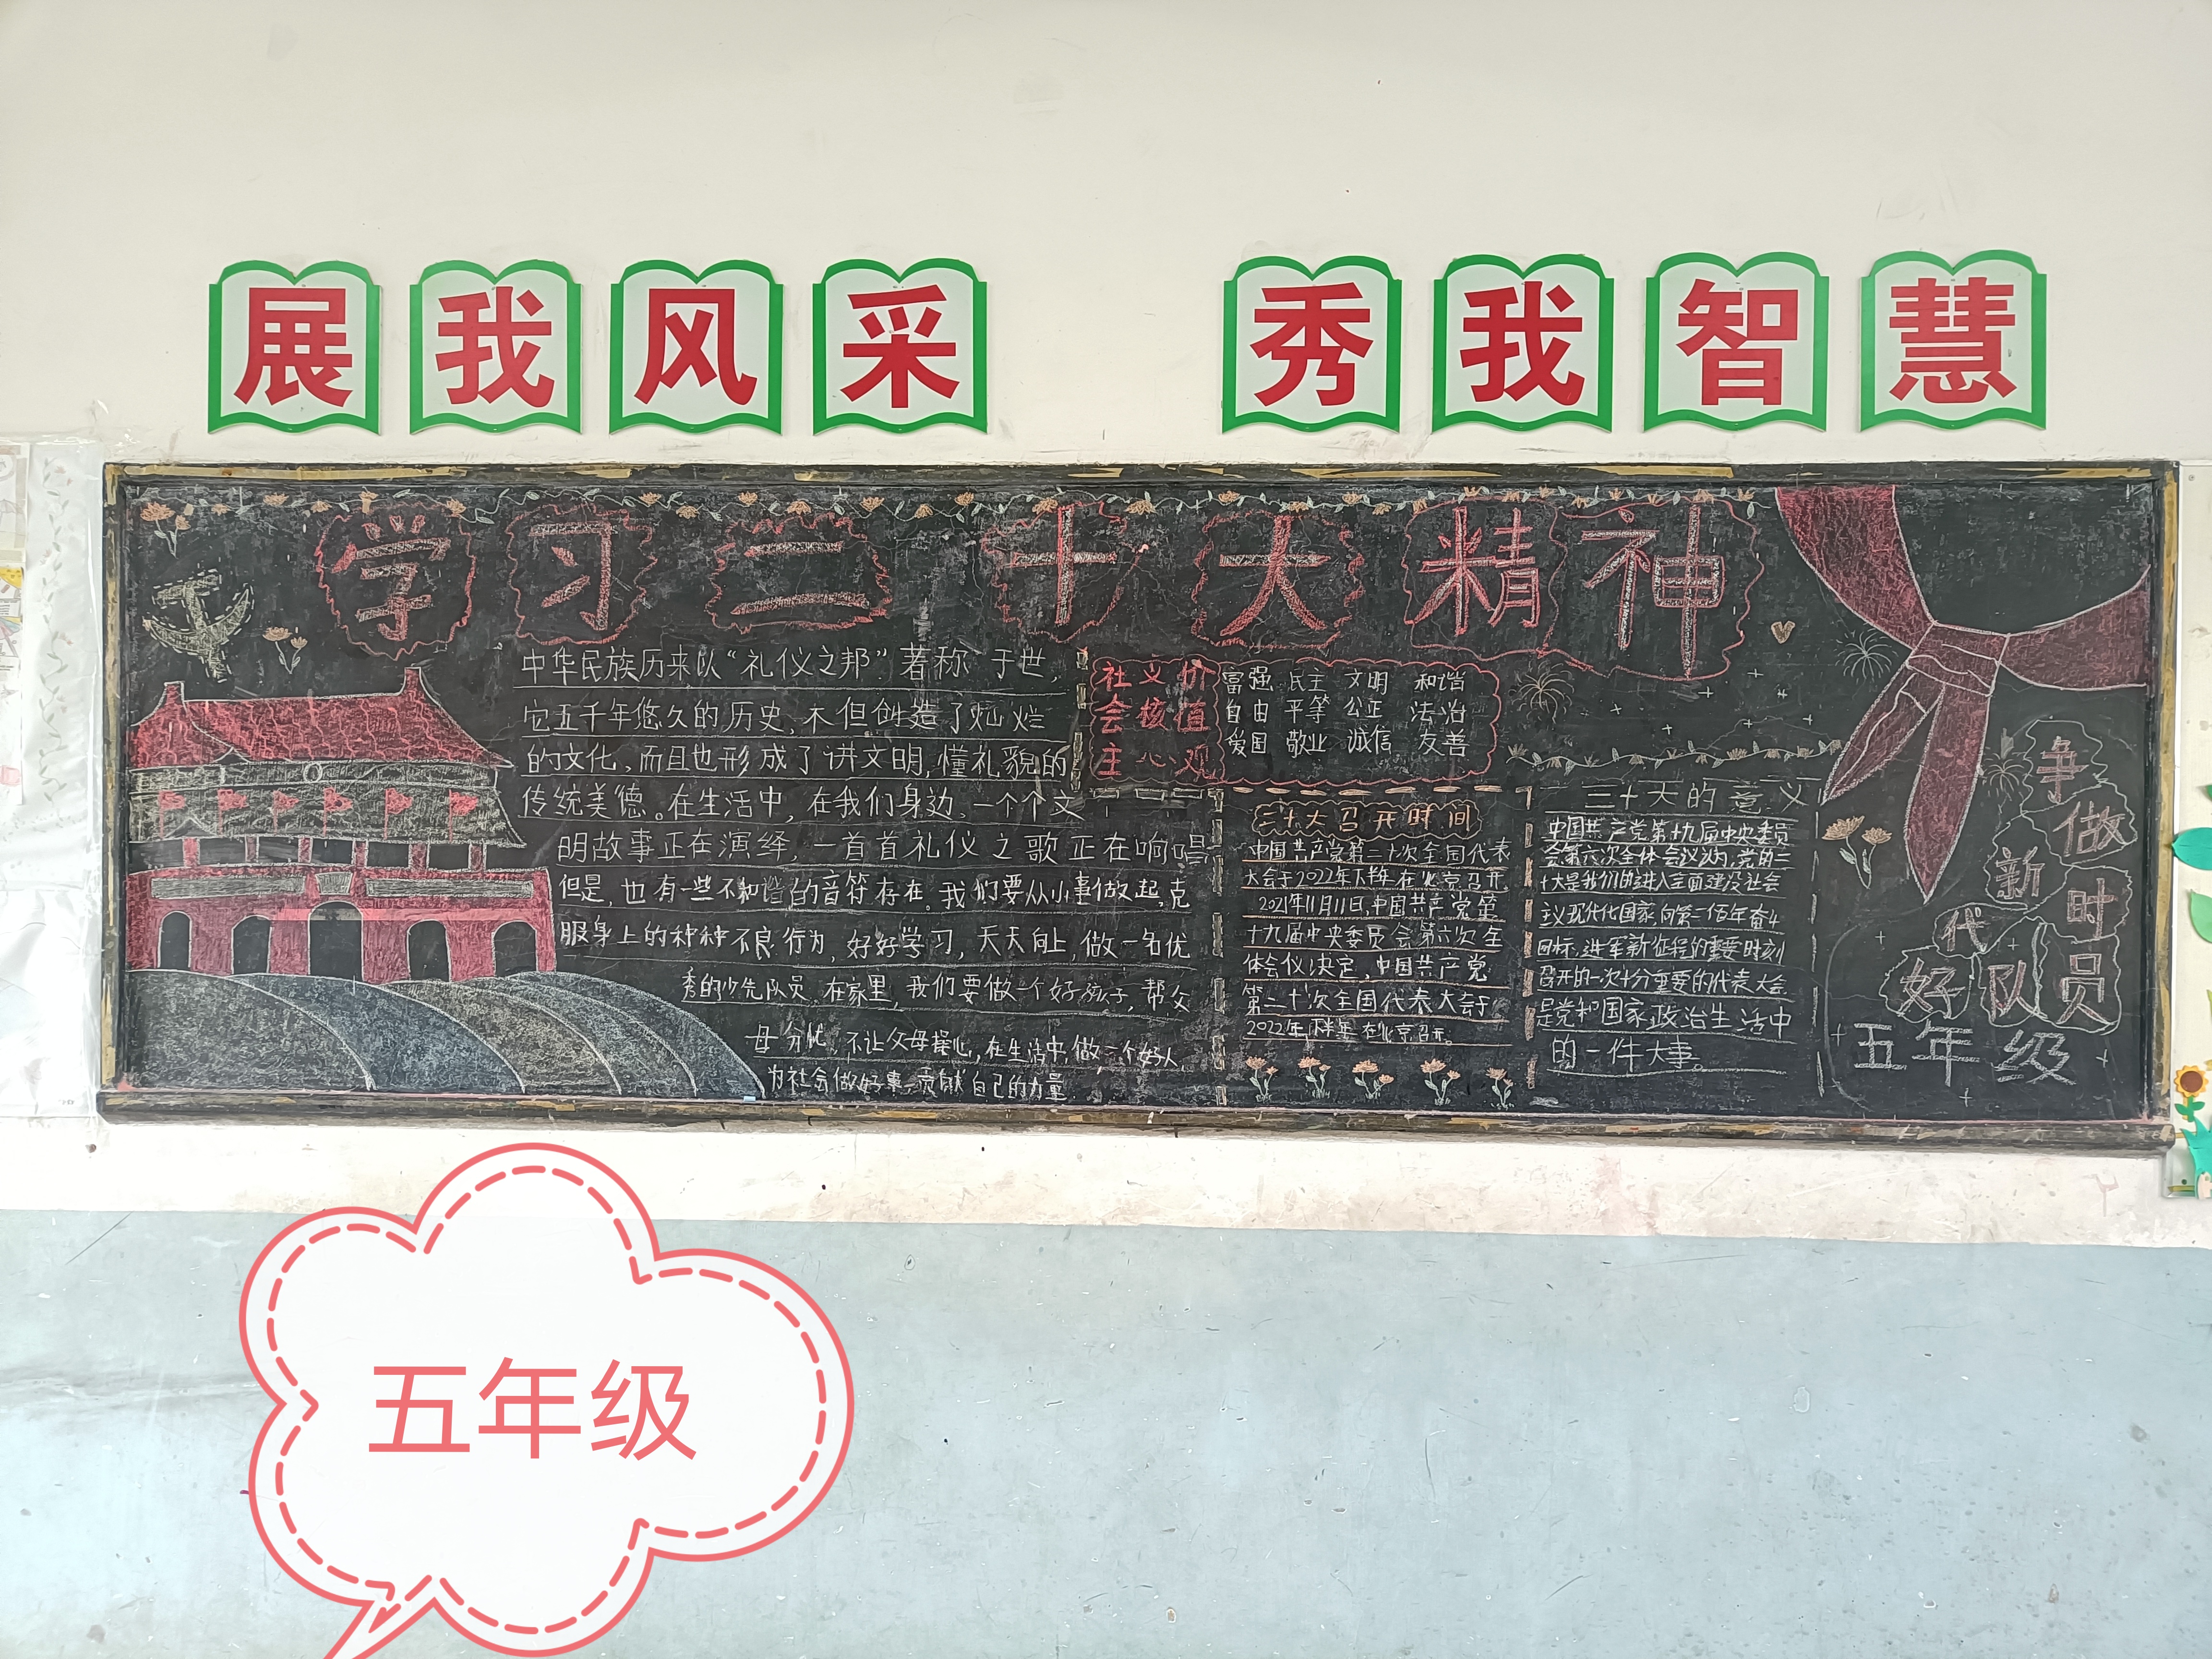 展我风采 秀我智慧
学习二十大精神
中华民族历来以“礼仪之邦”著称于世,
它五千年悠久的历史,不但创造了灿烂
的文化,而且也形成了讲文明,懂礼貌的
传统美德。在生活中,在我们身边,一个个文
明故事正在演绎,一首首礼仪之歌正在响唱
但是,也有一些不和谐的音符存在。我们要从小事做起,克
服身上的种种不良行为,好好学习,天天向上,做一名优
秀的少先队员。在家里,我们要做一个好孩子,帮父
母分忧,不让父母操心,在生活中,做一个好人,
为社会做好事,贡献自己的力量
社义价
会核值
主心观
富强 民主 文明 和谐
自由 平等 公正 法治
爱国 敬业 诚信 友善
二十大召开时间
中国共产党第二十次全国代表
大会于2022年下半年在北京召开
2021年11月11日,中国共产党第
十九届中央委员会第六次全
体会仪决定,中国共产党
第二十次全国代表大会于
2022年下半年在北京召开。
二十大的意义
中国共产党第十九届中央委员
会第六次全体会议认为,党的二
十大是我们的进入全面建设社会
主义现代化国家,向第二佰年奋斗
目标,进军新征程的重要时刻
召开的一次十分重要的代表大会.
是党和国家政治生活中
的一件大事。
争做新时代好队员
五年级
五年级